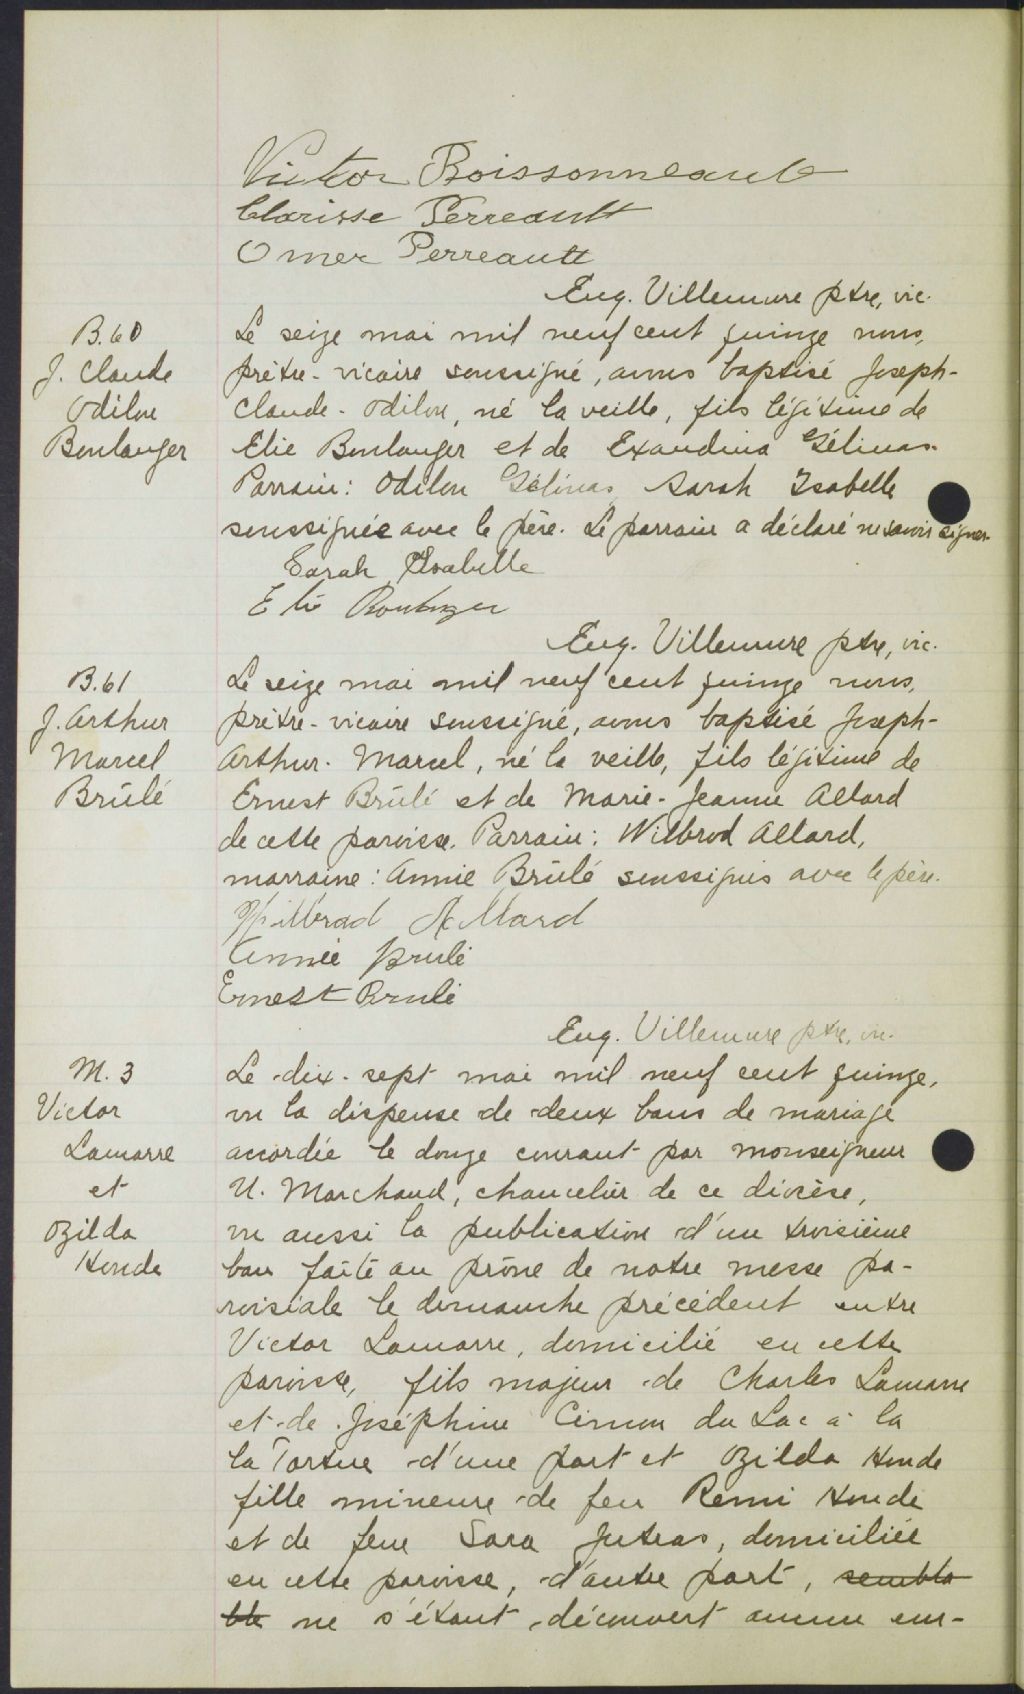 Victor Boissonneault
Clarisse Perreault
Omer Perreault
Eug. Villemure ptre, vic.
B. 60
J. Claude
Odilon
Boulanger
Le seize mai mil neuf cent quinze nous,
prêtre-vicaire soussigné, avons baptisé Joseph-
Claude-Odilon, né la veille, fils légitime de
Elie Boulanger et de Exaudina Gélinas.
Parrain: Odilon Gélinas, Sarah Isabelle
soussignée avec le père. Le parrain a déclaré ne savoir signer.
Sarah Isabelle
Elie Boulanger
Eug. Villemure ptre, vic.
B. 61
J. Arthur
Marcel
Brûlé
Le seize mai mil neuf cent quinze nous,
prêtre-vicaire soussigné, avons baptisé Joseph-
Arthur-Marcel, né la veille, fils légitime de
Ernest Brûlé et de Marie-Jeanne Allard
de cette paroisse. Parrain: Wilbrod Allard,
marraine: Annie Brûlé soussignés avec le père.
Wilbrad Allard
Annie Brulé
Ernest Brulé
Eug. Villemure ptre, vic.
M. 3
Victor
Lamarre
et
Ozilda
Houde
Le dix-sept mai mil neuf cent quinze,
vu la dispense de deux bans de mariage
accordée le douze courant par monseigneur
U. Marchand, chancelier de ce diocèse,
vu aussi la publication d'un troisième
ban faite au prône de notre messe pa-
roissiale le dimanche précédent entre
Victor Lamarre, domicilié en cette
paroisse, fils majeur de Charles Lamarre
et de Joséphine Cimon du Lac à la
la Tortue d'une part et Ozilda Houde
fille mineure de feu Remi Houde
et de feue Sara Jutras, domiciliée
en cette paroisse, d'autre part, sembla
ble ne s'étant découvert aucun em-